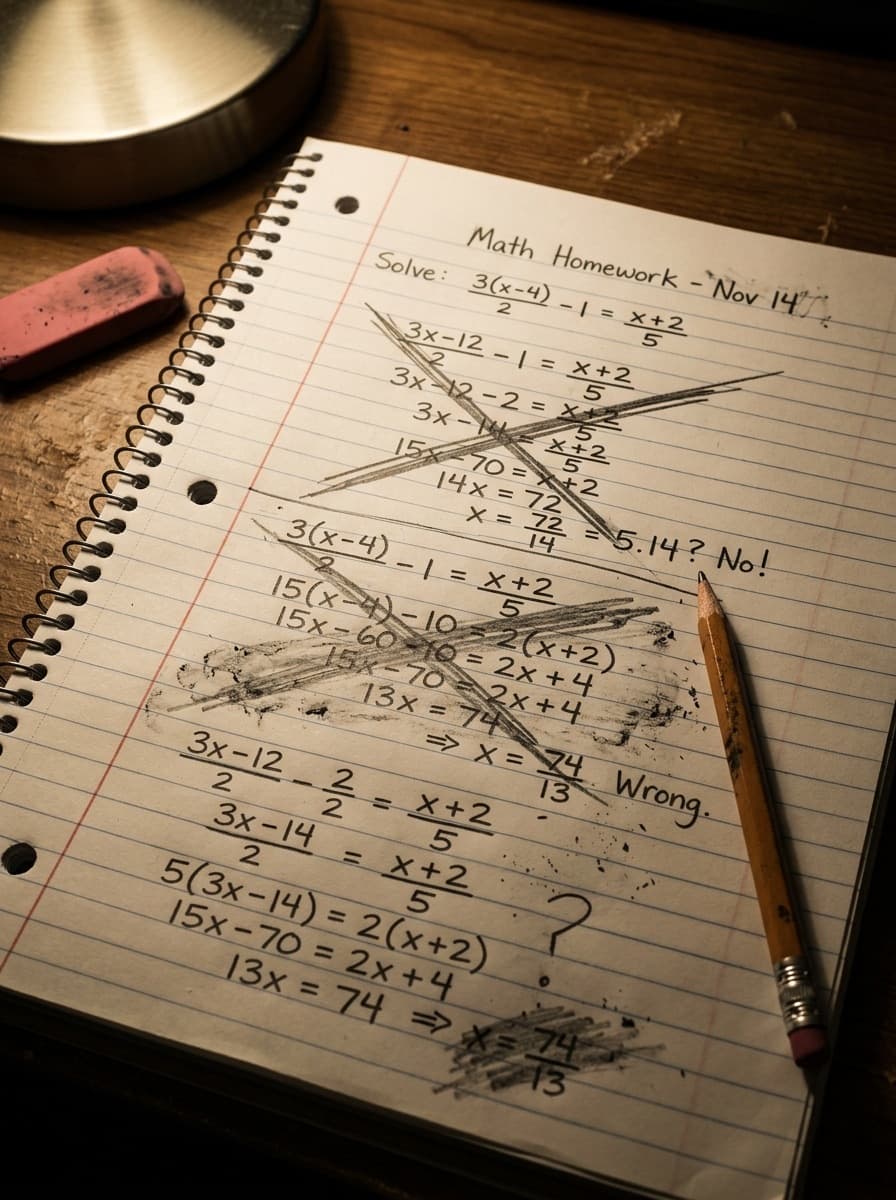 Math Homework - Nov 14
Solve: 3(x-4)/2 - 1 = x+2/5
3x-12/2 - 1 = x+2/5
3x-12 - 2 = x+2/5
3x - 14 = x+2/5
15x - 70 = x+2
14x = 72
x = 72/14 = 5.14? No!
3(x-4)/2 - 1 = x+2/5
15(x-4) - 10 = 2(x+2)
15x - 60 - 10 = 2x + 4
15x - 70 = 2x + 4
13x = 74
⇒ x = 74/13 Wrong.
3x-12/2 - 2/2 = x+2/5
3x-14/2 = x+2/5
5(3x-14) = 2(x+2) ?
15x-70 = 2x+4
13x = 74 ⇒ x = 74/13